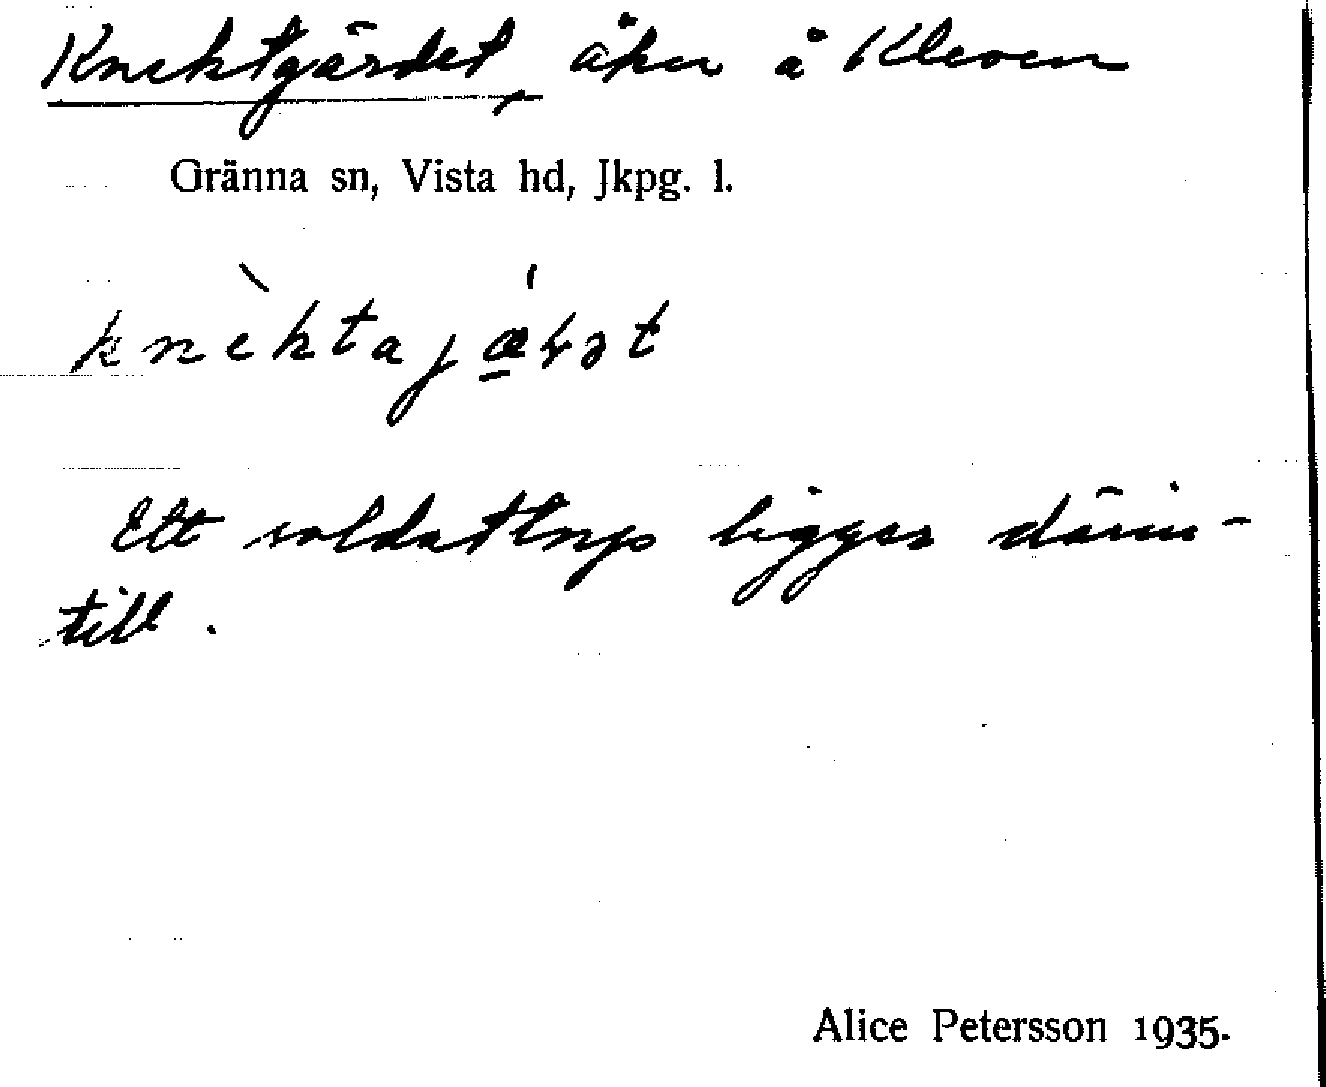 Knektgärdet, åker å Kleven
Gränna sn, Vista hd, Jkpg. l.
knèktajǽ̱rət
Ett soldattorp ligger därin-
till.
Alice Petersson 1935.